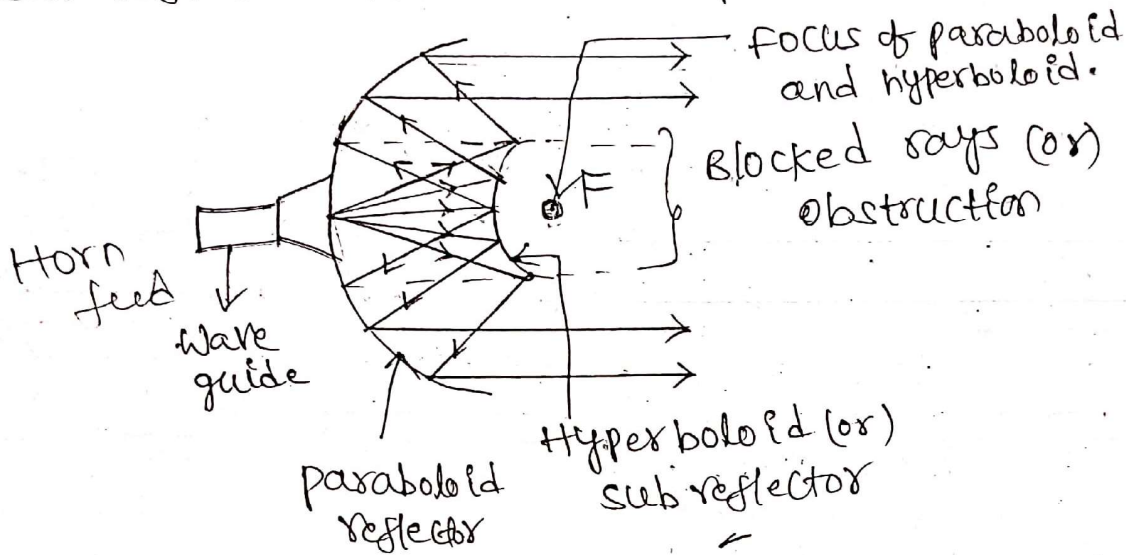 focus of paraboloid
and hyperboloid.
F
Blocked rays (or)
Obstruction
Horn
feed
Wave
guide
paraboloid
reflector
Hyperboloid (or)
sub reflector